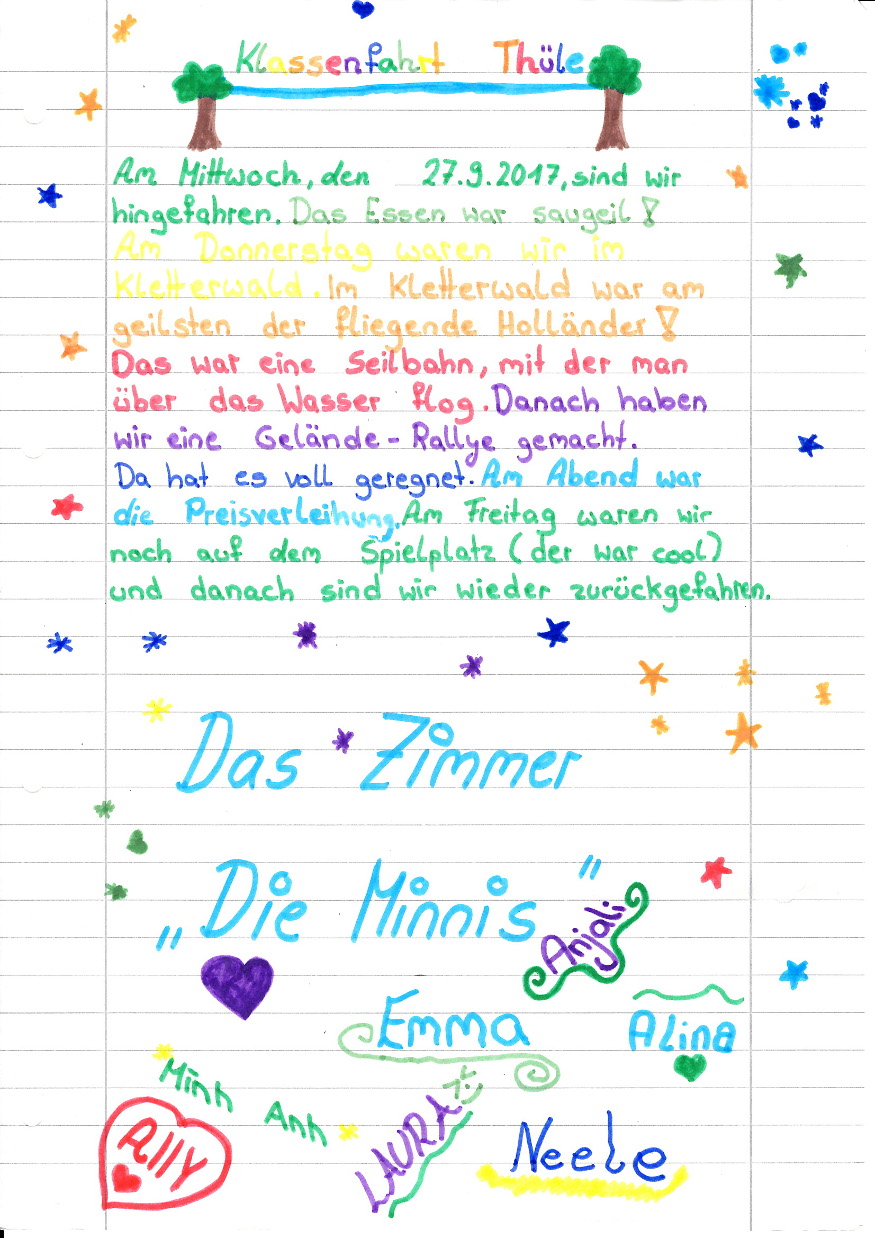 Klassenfahrt Thüle
Am Mittwoch, den 27.9.2017, sind wir
hingefahren. Das Essen war saugeil!
Am Donnerstag waren wir im
Kletterwald. Im Kletterwald war am
geilsten der fliegende Holländer!
Das war eine Seilbahn, mit der man
über das Wasser flog. Danach haben
wir eine Gelände-Rallye gemacht.
Da hat es voll geregnet. Am Abend war
die Preisverleihung. Am Freitag waren wir
noch auf dem Spielplatz (der war cool)
und danach sind wir wieder zurückgefahren.
Das Zimmer
„Die Minnis"
Anjali
Emma
Alina
Minh Anh
Ally
LAURA
Neele